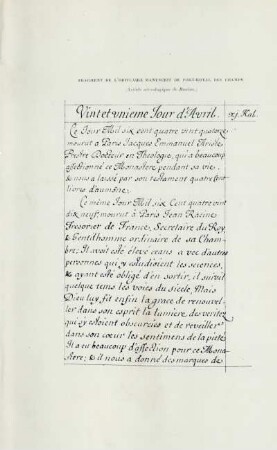 FRAGMENT DE L'OBITUAIRE MANUSCRIT DE PORT-ROYAL DES CHAMPS
Vint et unieme Jour d'Avril. xj. Kal.
Ce Jour Mil six cent quatre vint quatorze
mourut a Paris Jacques Emmanuel
Prestre Docteur en Theologie, qui a beaucoup
affectionné ce Monastere pendant sa vie.
& nous a laissé par son testament quatre
livres d'aumône;
Ce même Jour Mil six Cent quatre vint
dix neuf mourut à Paris Jean Racine
Tresorier de France, Secretaire du Roy
& Gentilhomme ordinaire de sa Cham-
bre; Il avoit esté élevé ceans avec d'autres
personnes qui y estudioient les sciences,
& ayant esté obligé d'en sortir, il suivit
quelque tems les voies du siecle, Mais
Dieu luy fit enfin la grace de renouvel-
ler dans son esprit la lumière des veritez
qui s'y estoient obscurcies et de reveiller
dans son coeur les sentimens de la pieté
Il a eu beaucoup d'affection pour ce Mona-
stere; & il nous a donné des marques de